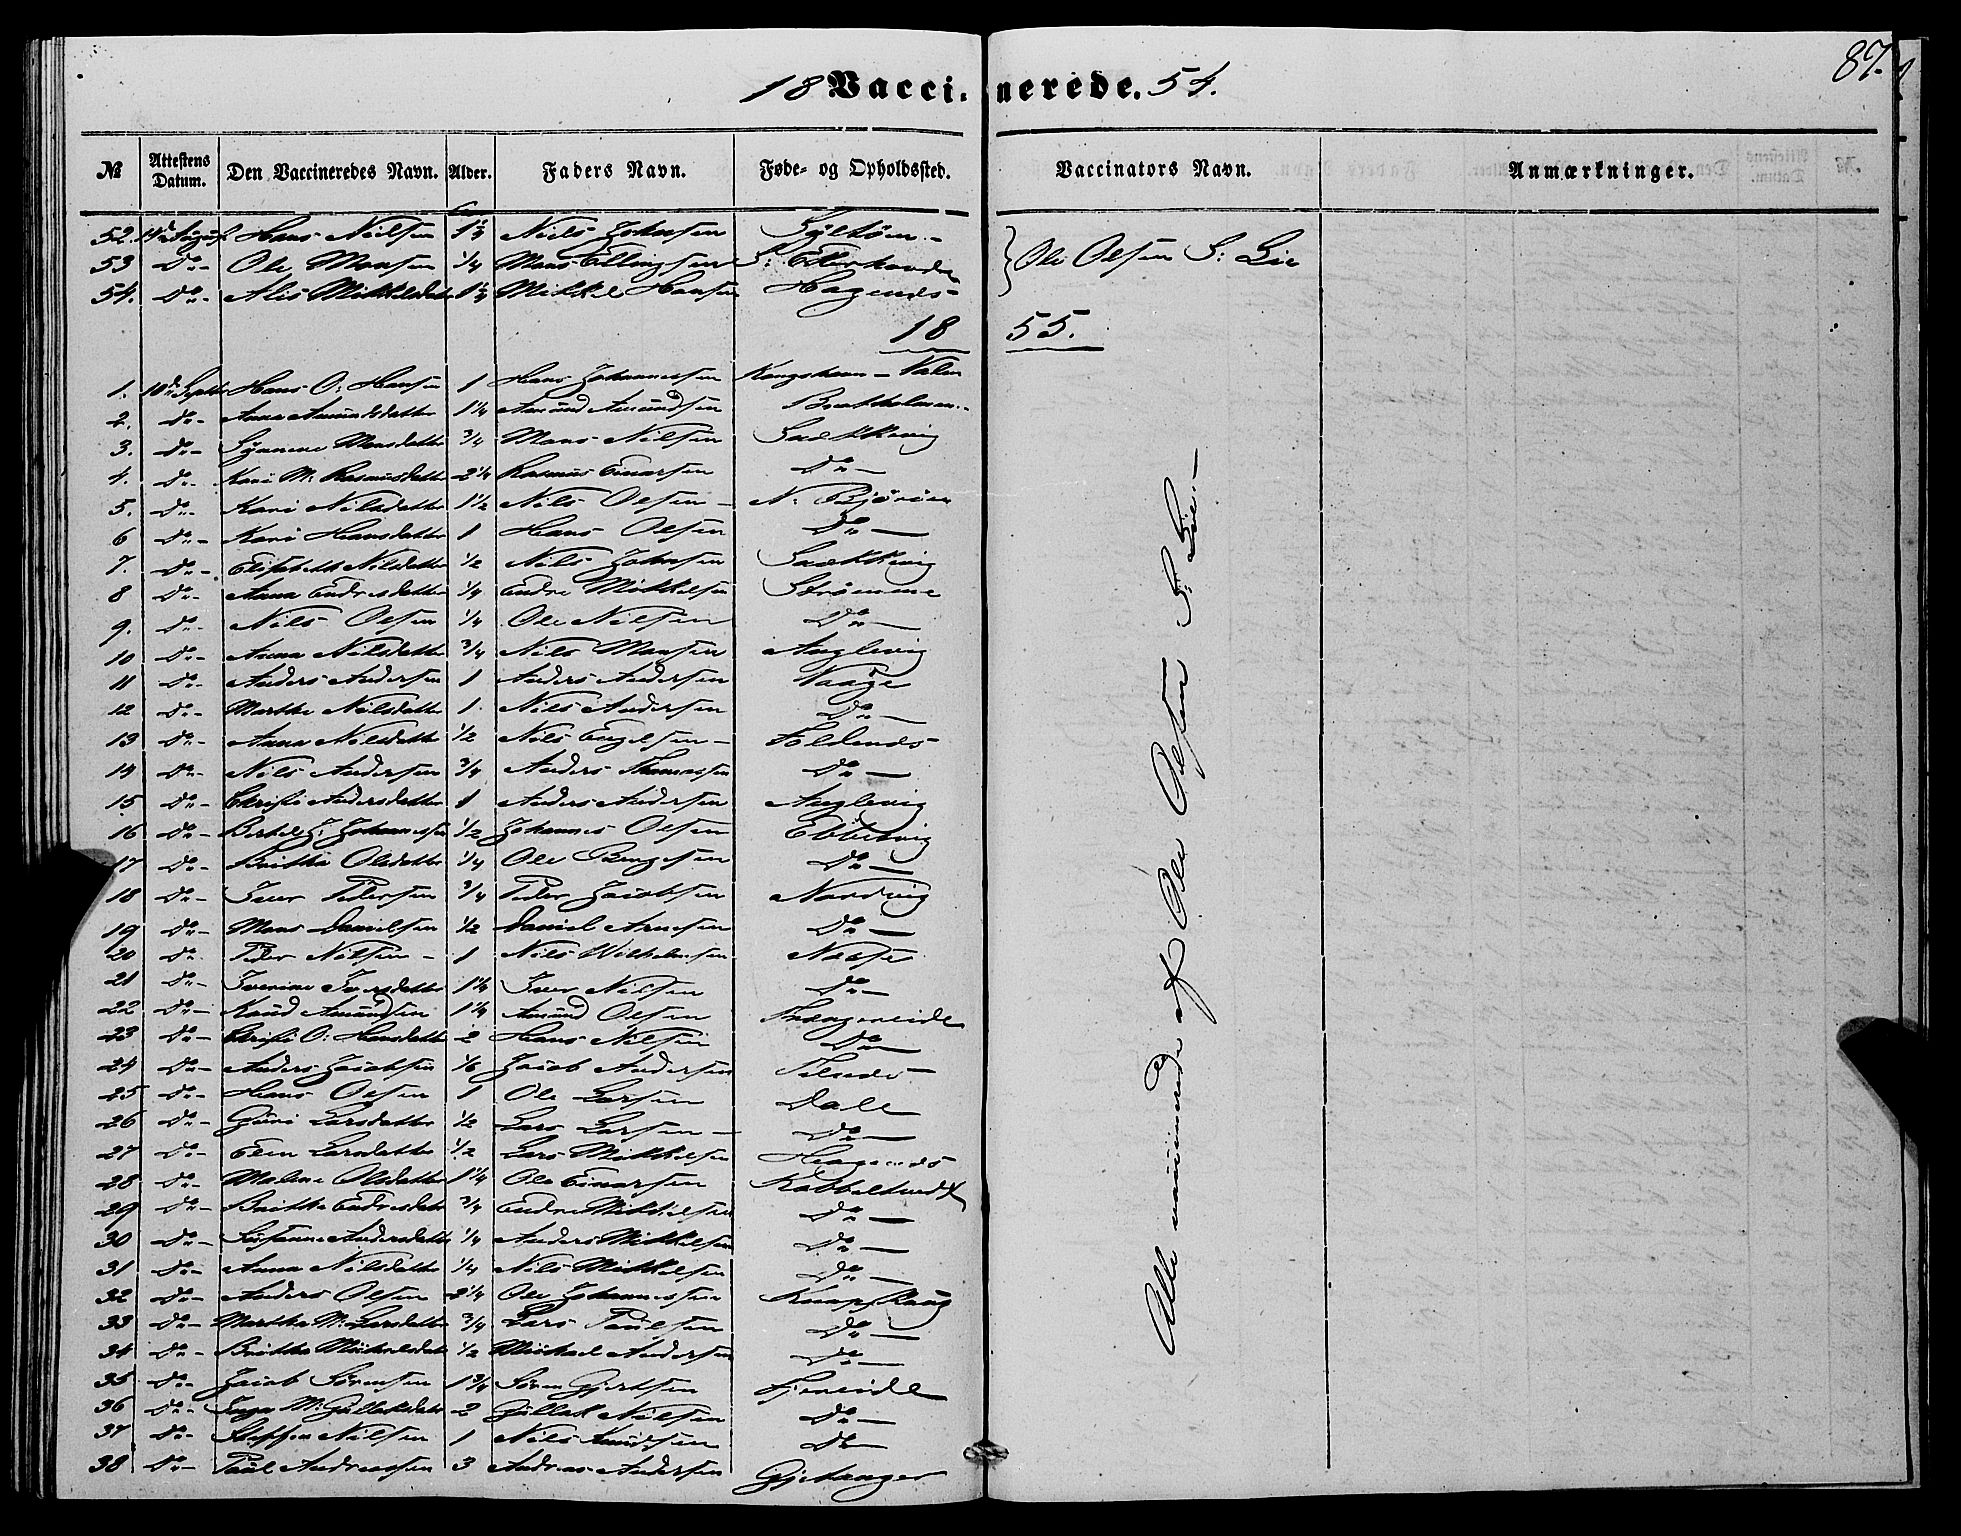 87.
18 Vaccinerede. 54.
№ Attestens Datum. Den Vaccineredes Navn. Alder. Faders Navn. Føde- og Opholdssted. Vaccinators Navn. Anmærkninger.
52. 14de August Hans Nielsen Niels Johnsen
53 Do- Ole Monsen 1/4 Mons Ellingsen Ole Olsen S: Lie
54. Do- Mikkelsdatter Mikkel Hansen Hagenæs-
18 55.
1. 10de Septbr Hans O: Hansen 1 Hans Johannessen
2. Do- Anna Amundsdatter 1 1/4 Amund Amundsen Bratholmen-
3. Do- Synneve Monsdatter 3/4 Mons Nilsen Sækkevig
4. Do- Kari M: Rasmusdatter 2 1/4 Rasmus Einarsen Do-
5. Do- Kari Nilsdatter 1 1/2 Nils Olsen- N: Bjorøen
6 Do- Kari Hansdatter 1 Hans Olsen Do-
7. Do- Elisabeth Nilsdatter 1/2 Nils Johnsen Sækkevig
8 Do- Anna Endresdatter 1/4 Endre Mikkelsen Strømme
9. Do- Nils Olsen 1/4 Ole Nilsen Do-
10 Do- Anna Nilsdatter 3/4 Nils Monsen Anglevig
11 Do- Anders Andersen 1 Anders Andersen Vaage
12 Do- Marthe Nilsdatter 1. Nils Andersen Do-
13 Do- Anna Nilsdatter 1/2 Nils Engelsen- Foldenæs
14 Do- Nils Andersen 3/4 Anders Thomassen Do-
15 Do- Christi Andersdatter 1 Anders Andersen Anglevig
16 Do- Bertel J. Johannessen 1/2 Johannes Olsen Ebbesvig
17 Do- Brithe Olsdatter 1/4 Ole Do-
18 Do- Iver Pedersen 3/4 Peder Jacobsen Nordvig
19 Do- Mons Danielsen 1/2 Daniel Arnesen Do-
20 Do- Peder Nilsen- 1 Nils Wilhelmsen
21 Do- Iverine Iversdatter 1 1/4 Iver Nilsen Do-
22 Do- Knud Amundsen 1 1/4 Amund Olsen Snægereide
23 Do- Christi O: Hansdatter 2 Hans Nilsen Do-
24 Do- Anders Jacobsen 1/6 Jacob Andersen Telnæs
25 Do- Hans Olsen 1 Ole Larsen Dale
26 Do- Guri Larsdatter 1/2 Lars Larsen- Do-
27 Do- Elen Larsdatter 1/2 Lars Mikkelsen Hagenæs
28 Do- Malene Olsdatter 1 1/4 Ole Einarsen Kobbeltvedt
29 Do- Brithe Endresdatter 3/4 Endre Mikkelsen Do-
30 Do- Susanne Andersdatter 1/4 Anders Mikkelsen Do-
31 Do- Anna Nilsdatter 1/4 Nils Mikkelsen Do-
32 Do- Anders Olsen 2 1/4 Ole Johannessen Knapskoug
33 Do- Martha M: Larsdatter 3/4 Lars Paulsen Do-
34 Do- Brithe Michelsdatter 1/2 Michael Andersen Do-
35 Do- Jacob Sørensen 1 3/4 Søren Gjertsen Fjereide
36 Do- Inga M: Gullaksdatter 2 Gullak Nilsen Do-
37 Do- Steffen Nilsen 1 Nils Knudsen Do-
38 Do- Paul Andreassen 3 Andreas Andersen Gjetanger
Alle vaccinerede af Ole Olsen S: Lie.-